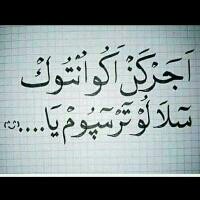 اَجَرْكَنْ اَكُوانْتُوكْ
سَلاَلُوْ تَرْسَپُوْمْ يَا....